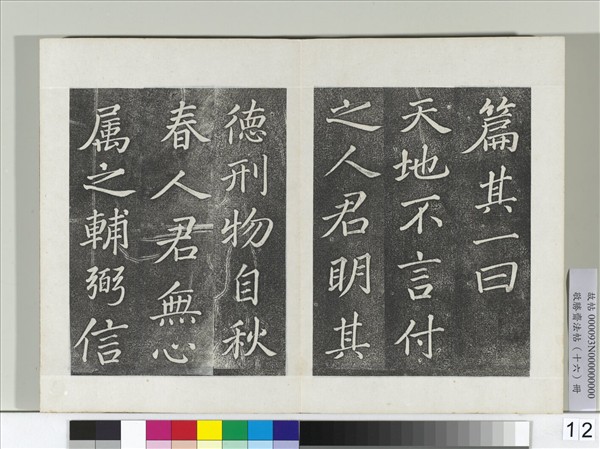 篇其一曰
天地不言付
之人君明其
德刑物自秋
春人君無心
属之輔弼信
故帖000093N000000000
敬勝齋法帖（十六）冊
12